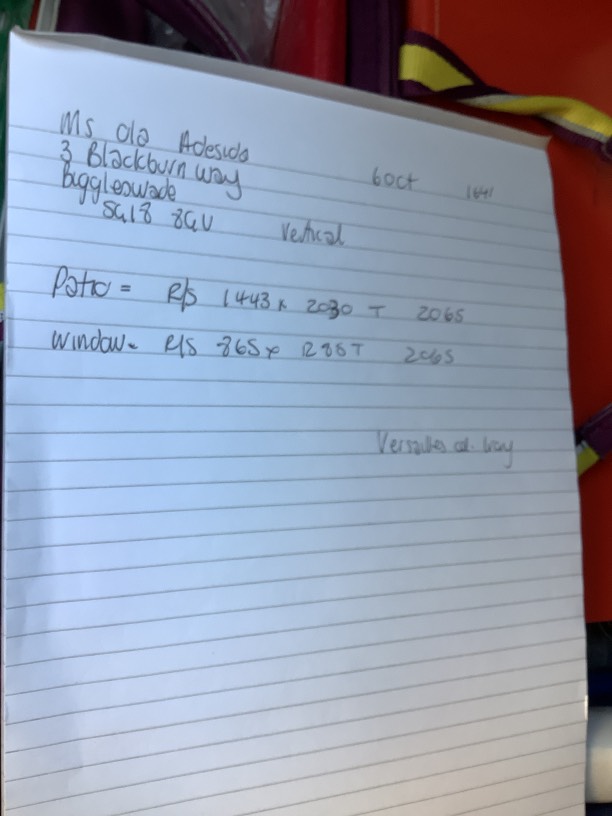 Ms Ola Adesida
3 Blackburn Way
Biggleswade
SG18 8GU
6 Oct
1641
Vertical
Patio = R/S 1443 x 2030 T 2065
Window = R/S 865 x 1285 T 2065
Versailles col. Ivory